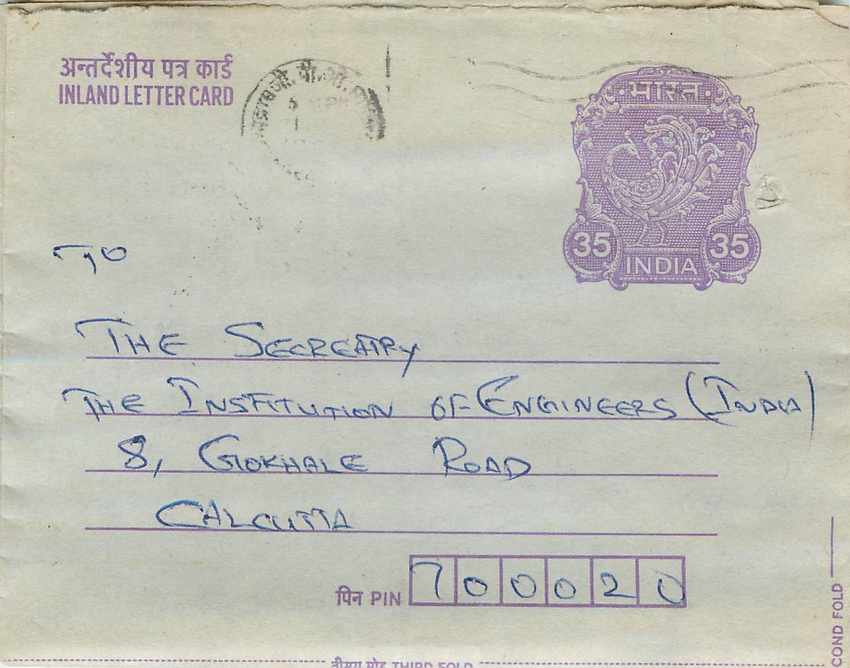 अन्तर्देशीय पत्र कार्ड
INLAND LETTER CARD
भारत
35 35
INDIA
TO
THE SECREATRY
THE INSTITUTION OF ENGINEERS (INDIA)
8, GOKHALE ROAD
CALCUTTA
पिन PIN 700020
COND FOLD
तीसरा मोड़ THIRD FOLD